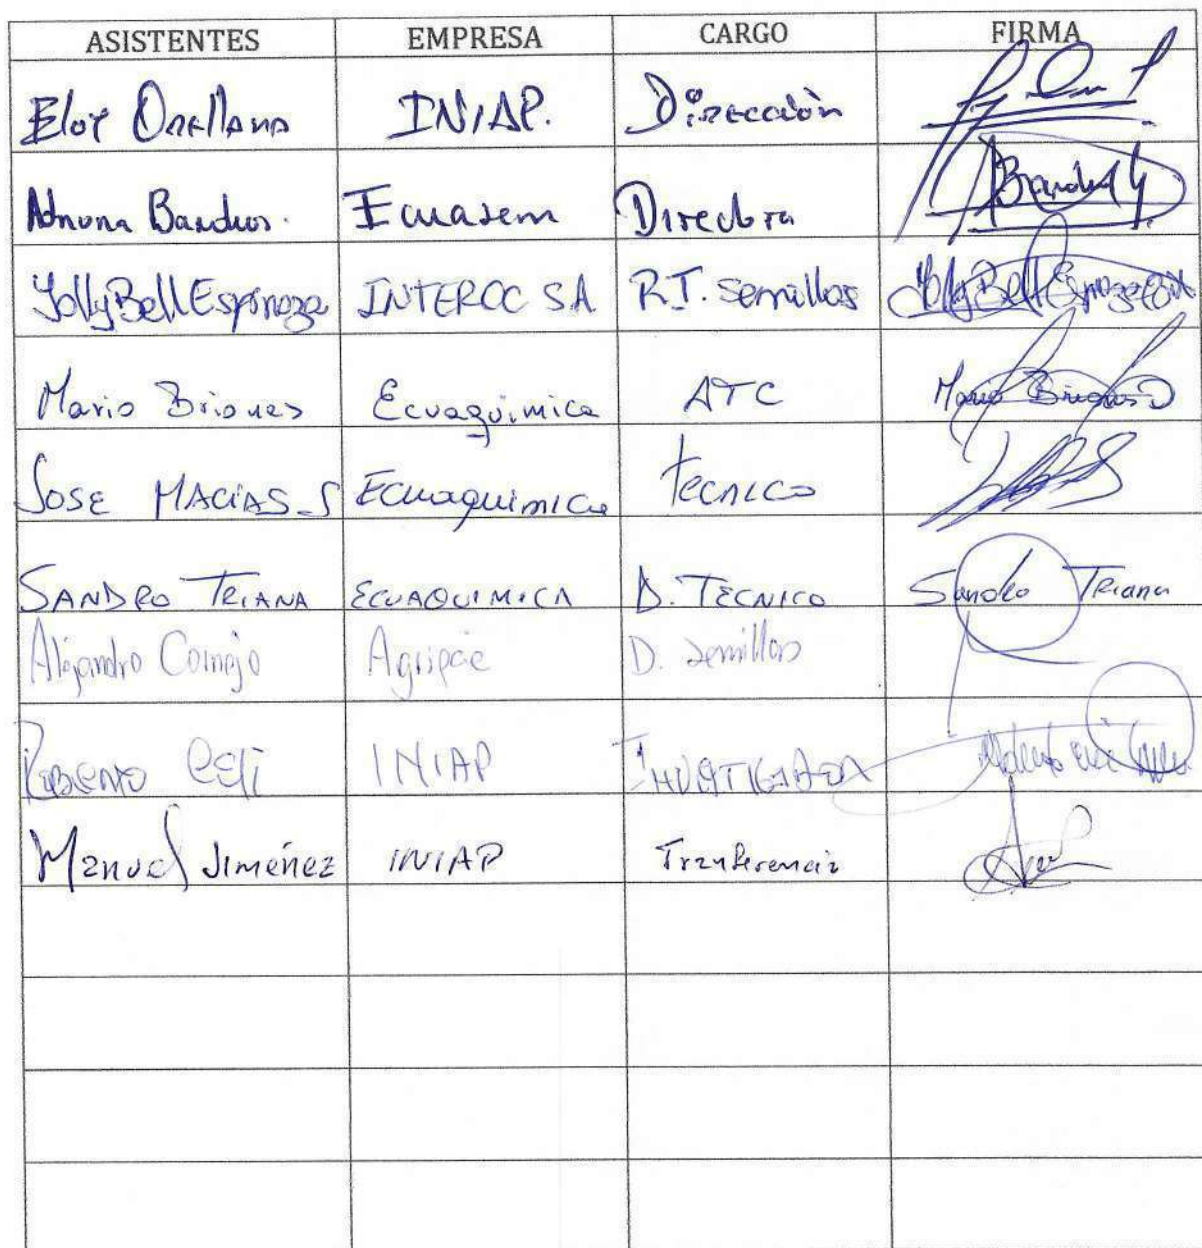 ASISTENTES EMPRESA CARGO FIRMA
Eloy Orellana INIAP. Dirección
Adriana Bardeos. Ecuasem Directora
YollyBell Espinoza INTEROC SA R.T. semillas YollyBell Espinoza
Mario Briones Ecuaquimica ATC Mario Briones
JOSE MACIAS S Ecuaquimica Tecnico
SANDRO TRIANA ECUAQUIMICA D. TECNICO Sandro Triana
Alejandro Cornejo Agripac D. semillas
ROBERTO CELI INIAP INVESTIGADOR
Manuel Jiménez INIAP Transferencia